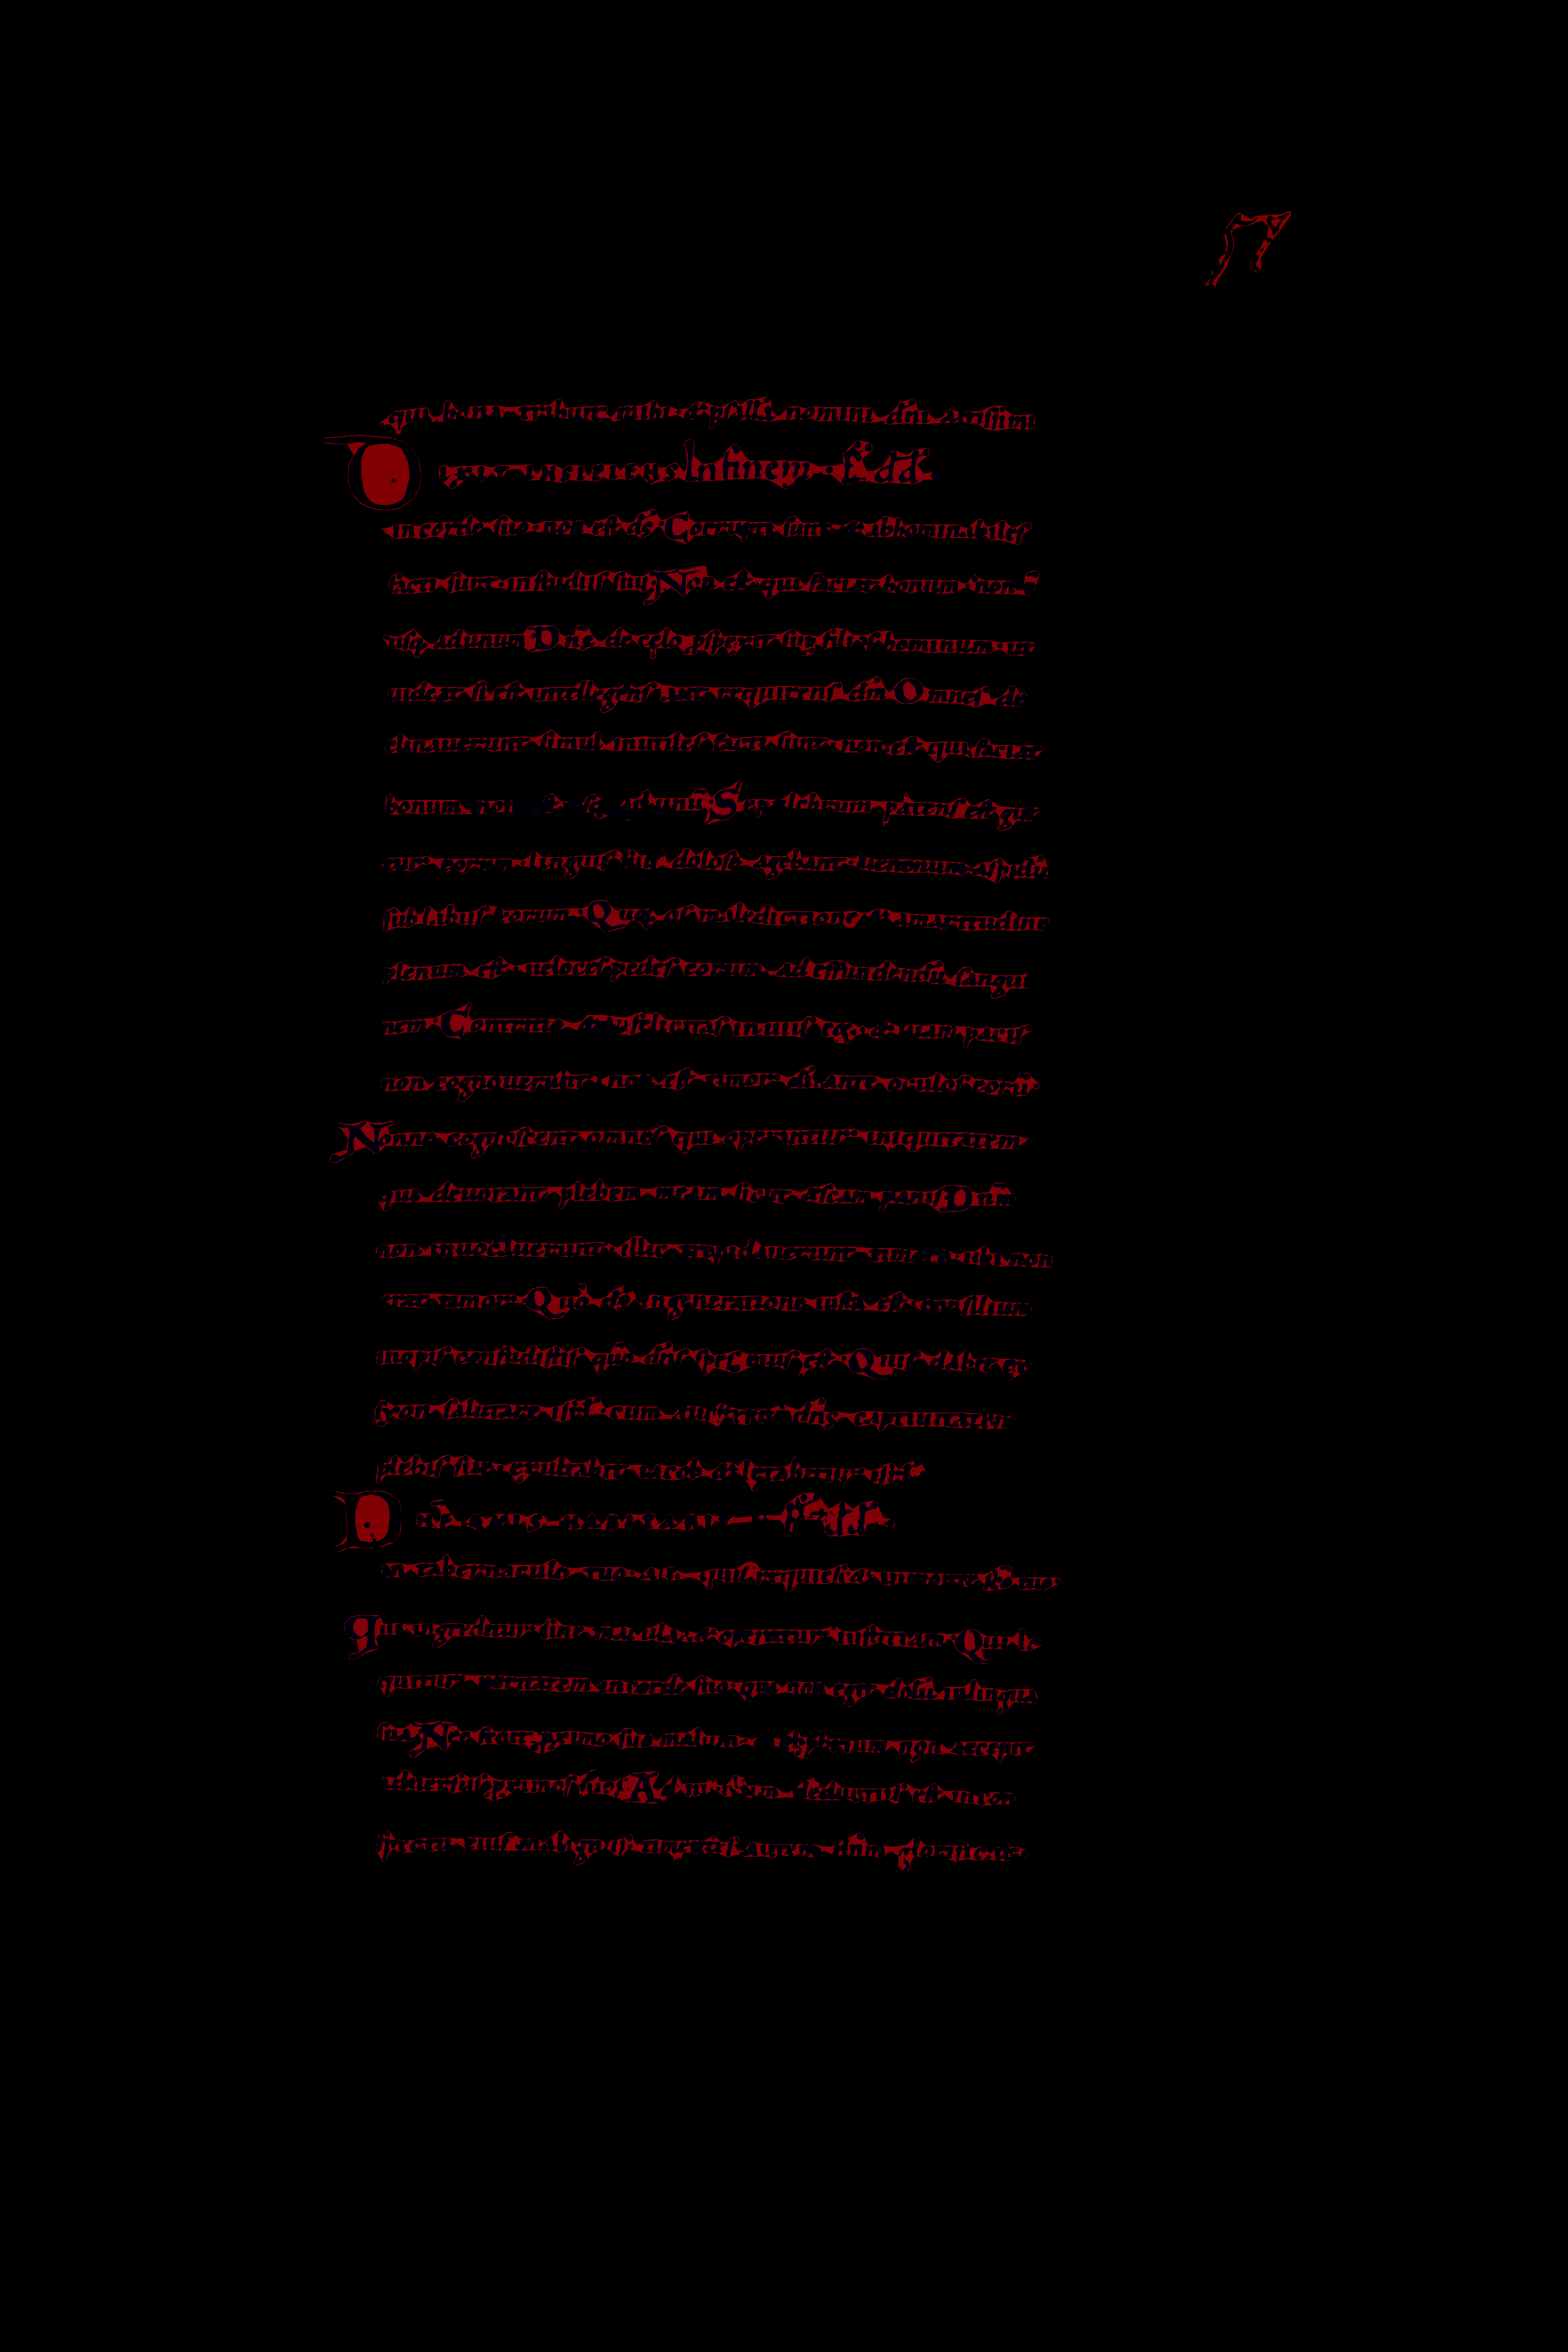 17
qui bona tribuit mihi & psallā nomini dn̄i altissimi
DIXIT INSIPIENS In finem Psl dd
in corde suo non est ds̄ Corrupti sunt & abhominabiles
facti sunt in studiis suis Non est qui faciat bonum non ē
usq; ad unum Dn̄s de celo prospexit sup filios hominum ut
uideat si est intellegens aut requirens dm̄ Omnes de
clinauerunt simul inutiles facti sunt non est qui faciat
bonum non est usq; ad unū Sepulchrum patens est gut
tur eorum linguis suis dolose agebant uenenum aspidū
sub labiis eorum Quorum os maledictione & amaritudine
plenum est ueloces pedes eorum ad effundendū sangui
nem Contritio & infelicitas in uiis eorum & uiam pacis
non cognouerunt non est timor dī ante oculos eorū
Nonne cognoscent omnes qui operantur iniquitatem
qui deuorant plebem meam sicut escam panis Dnm̄
non inuocauerunt illic trepidauerunt timore ubi non
erat timor Qūo ds̄ in generatione iusta est consilium
inopis confudistis qm̄ dn̄s spes eius est Quis dabit ex
syon salutare isrl cum auerterit dn̄s captiuitatem
plebis sue Exultabit iacob & lętabitur isrl
DNE QUIS HABITABIT Ps dd
in tabernaculo tuo aut quis requiescet in monte sc̄o tuo
qui ingreditur sine macula & operatur iustitiam Qui lo
quitur ueritatem in corde suo qui non egit dolū in lingua
sua Nec fecit proximo suo malum & obprobrium non accepit
aduersus proximos suos Ad nichilum deductus est in con
spectu eius malignus timentes autem dn̄m glorificat